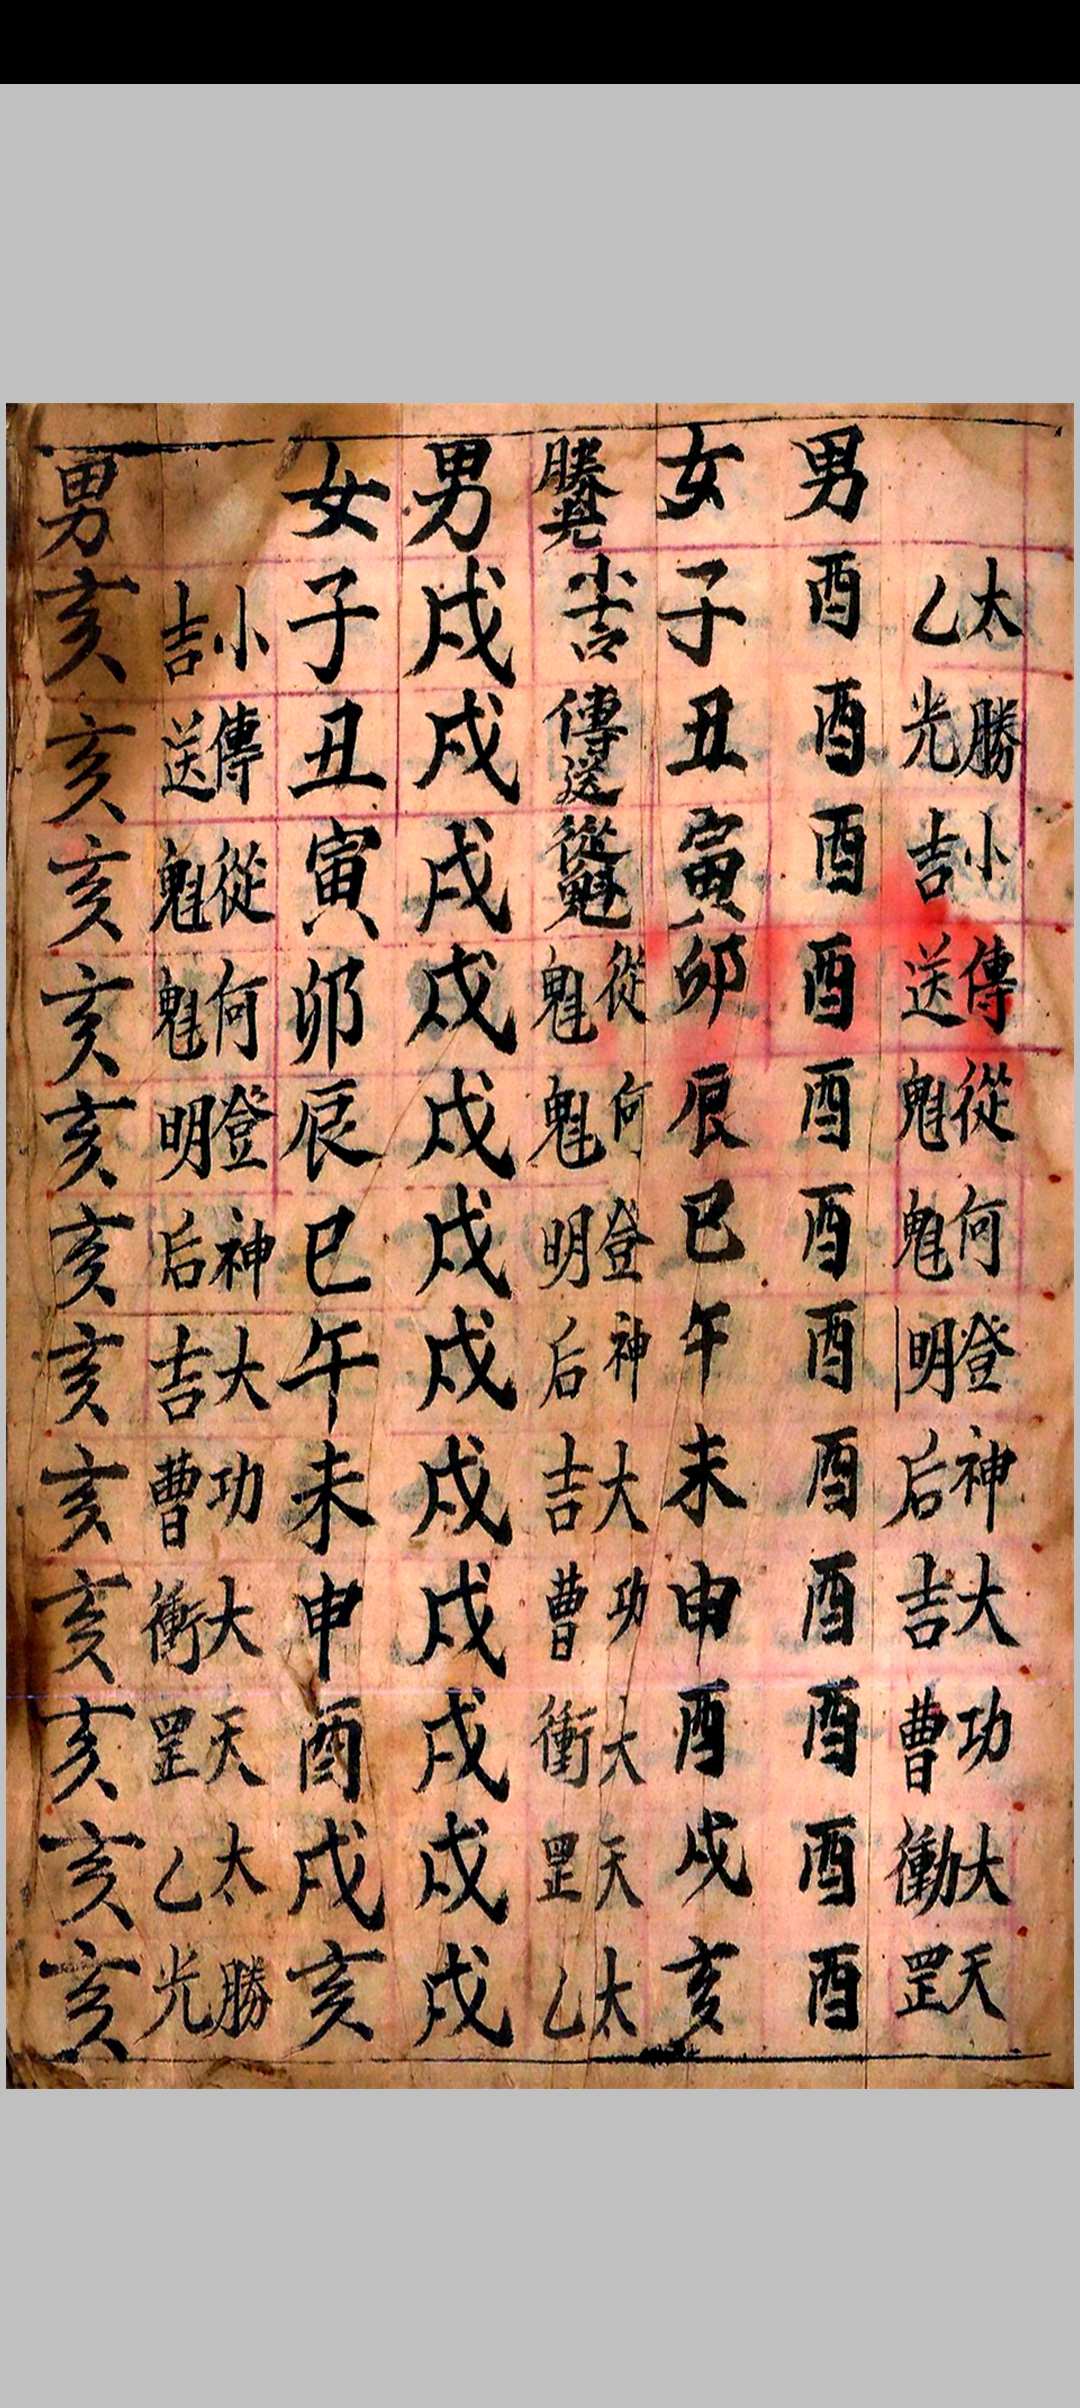 太乙 勝光 小吉 傳送 從魁 何魁 登明 神后 大吉 功曹 大衝 天罡
男 酉 酉 酉 酉 酉 酉 酉 酉 酉 酉 酉 酉
女 子 丑 寅 卯 辰 巳 午 未 申 酉 戌 亥
勝光 小吉 傳送 從魁 從魁 何魁 登明 神后 大吉 功曹 大衝 天罡 太乙
男 戌 戌 戌 戌 戌 戌 戌 戌 戌 戌 戌 戌
女 子 丑 寅 卯 辰 巳 午 未 申 酉 戌 亥
小吉 傳送 從魁 何魁 登明 神后 大吉 功曹 大衝 天罡 太乙 勝光
男 亥 亥 亥 亥 亥 亥 亥 亥 亥 亥 亥 亥